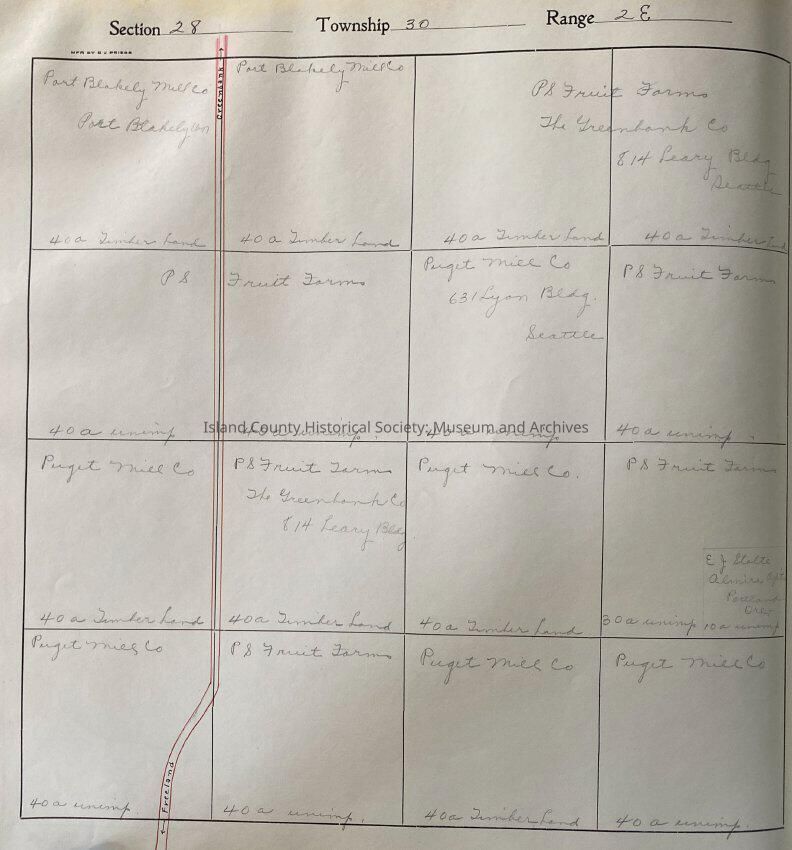 Section 28 Township 30 Range 2 E
MFR BY
Port Blakely Mill Co
Port Blakely Wn
40 a Timber Land
Greenbank
Port Blakely Mill Co
40 a Timber Land
PS Fruit Farms
The Greenbank Co
814 Leary Bldg
Seattle
40 a Timber Land
40 a Timber Land
PS Fruit Farms
40 a unimp
40 a unimp.
Puget Mill Co
631 Lyon Bldg.
Seattle
40 a unimp
PS Fruit Farms
40 a unimp.
Island County Historical Society: Museum and Archives
Puget Mill Co
40 a Timber Land
PS Fruit Farms
The Greenbank Co
814 Leary Bldg
40 a Timber Land
Puget Mill Co.
40 a Timber Land
PS Fruit Farms
E J Stolte
Almira Apt
Portland
Ore
30 a unimp 10 a unimp
Puget Mill Co
40 a unimp.
Freeland
PS Fruit Farms
40 a unimp.
Puget Mill Co
40 a Timber Land
Puget Mill Co
40 a unimp.